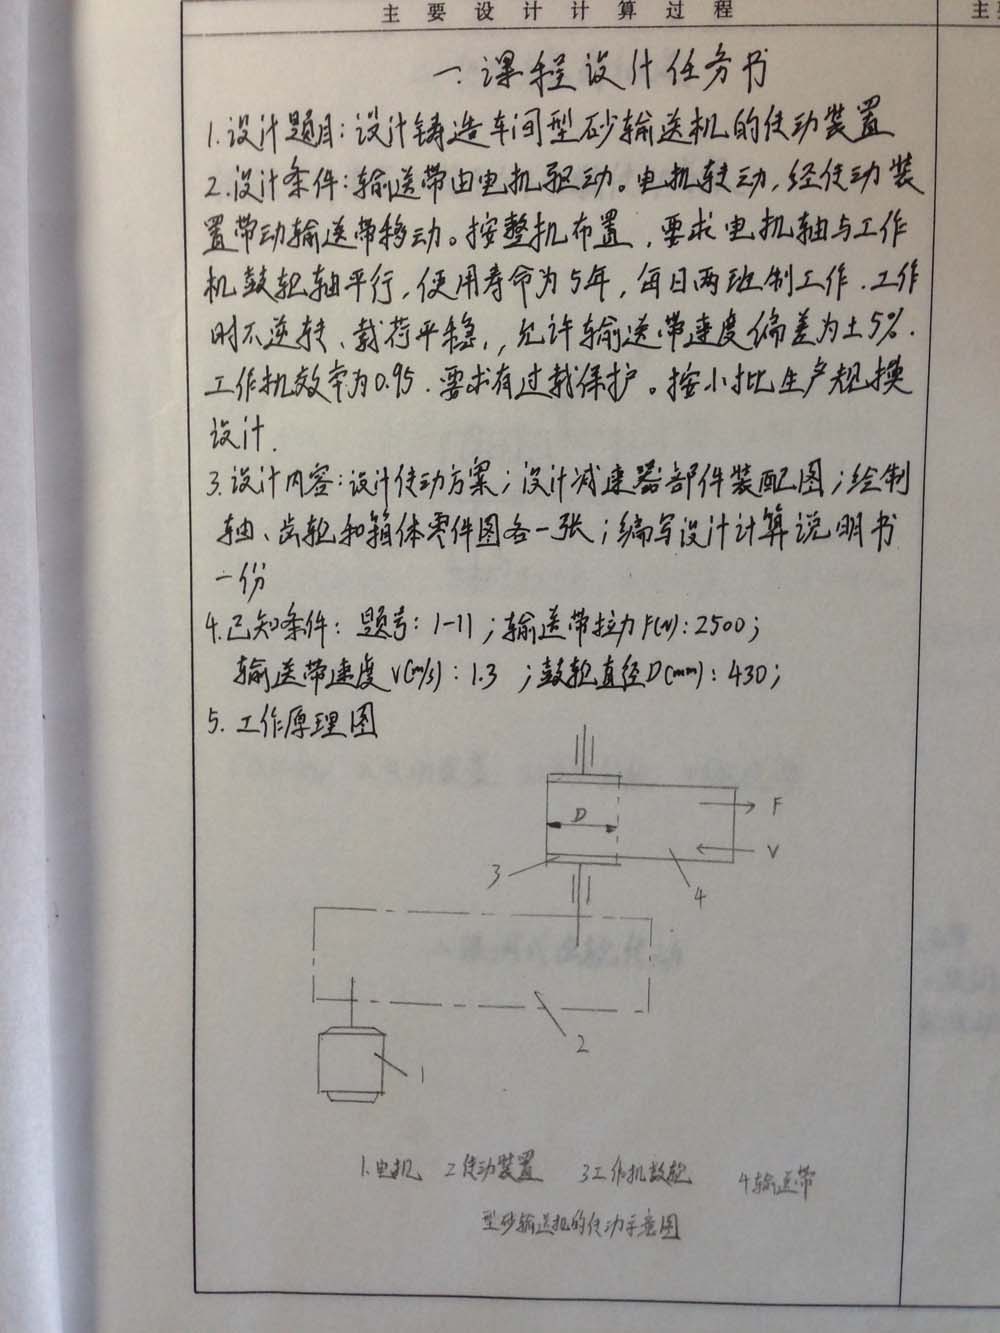 主要设计计算过程
主
一.课程设计任务书
1.设计题目:设计铸造车间型砂输送机的传动装置
2.设计条件:输送带由电机驱动。电机转动,经传动装
置带动输送带移动。按整机布置,要求电机轴与工作
机鼓轮轴平行,使用寿命为5年,每日两班制工作.工作
时不逆转、载荷平稳,,允许输送带速度偏差为±5%.
工作机效率为0.95.要求有过载保护。按小批生产规模
设计.
3.设计内容:设计传动方案;设计减速器部件装配图;绘制
轴、齿轮和箱体零件图各一张;编写设计计算说明书
一份
4.已知条件:题号:1-11;输送带拉力F(N):2500;
输送带速度V(m/s):1.3;鼓轮直径D(mm):430;
5.工作原理图
D
F
V
3
4
2
1
1.电机 2传动装置 3工作机鼓轮 4输送带
型砂输送机的传动示意图